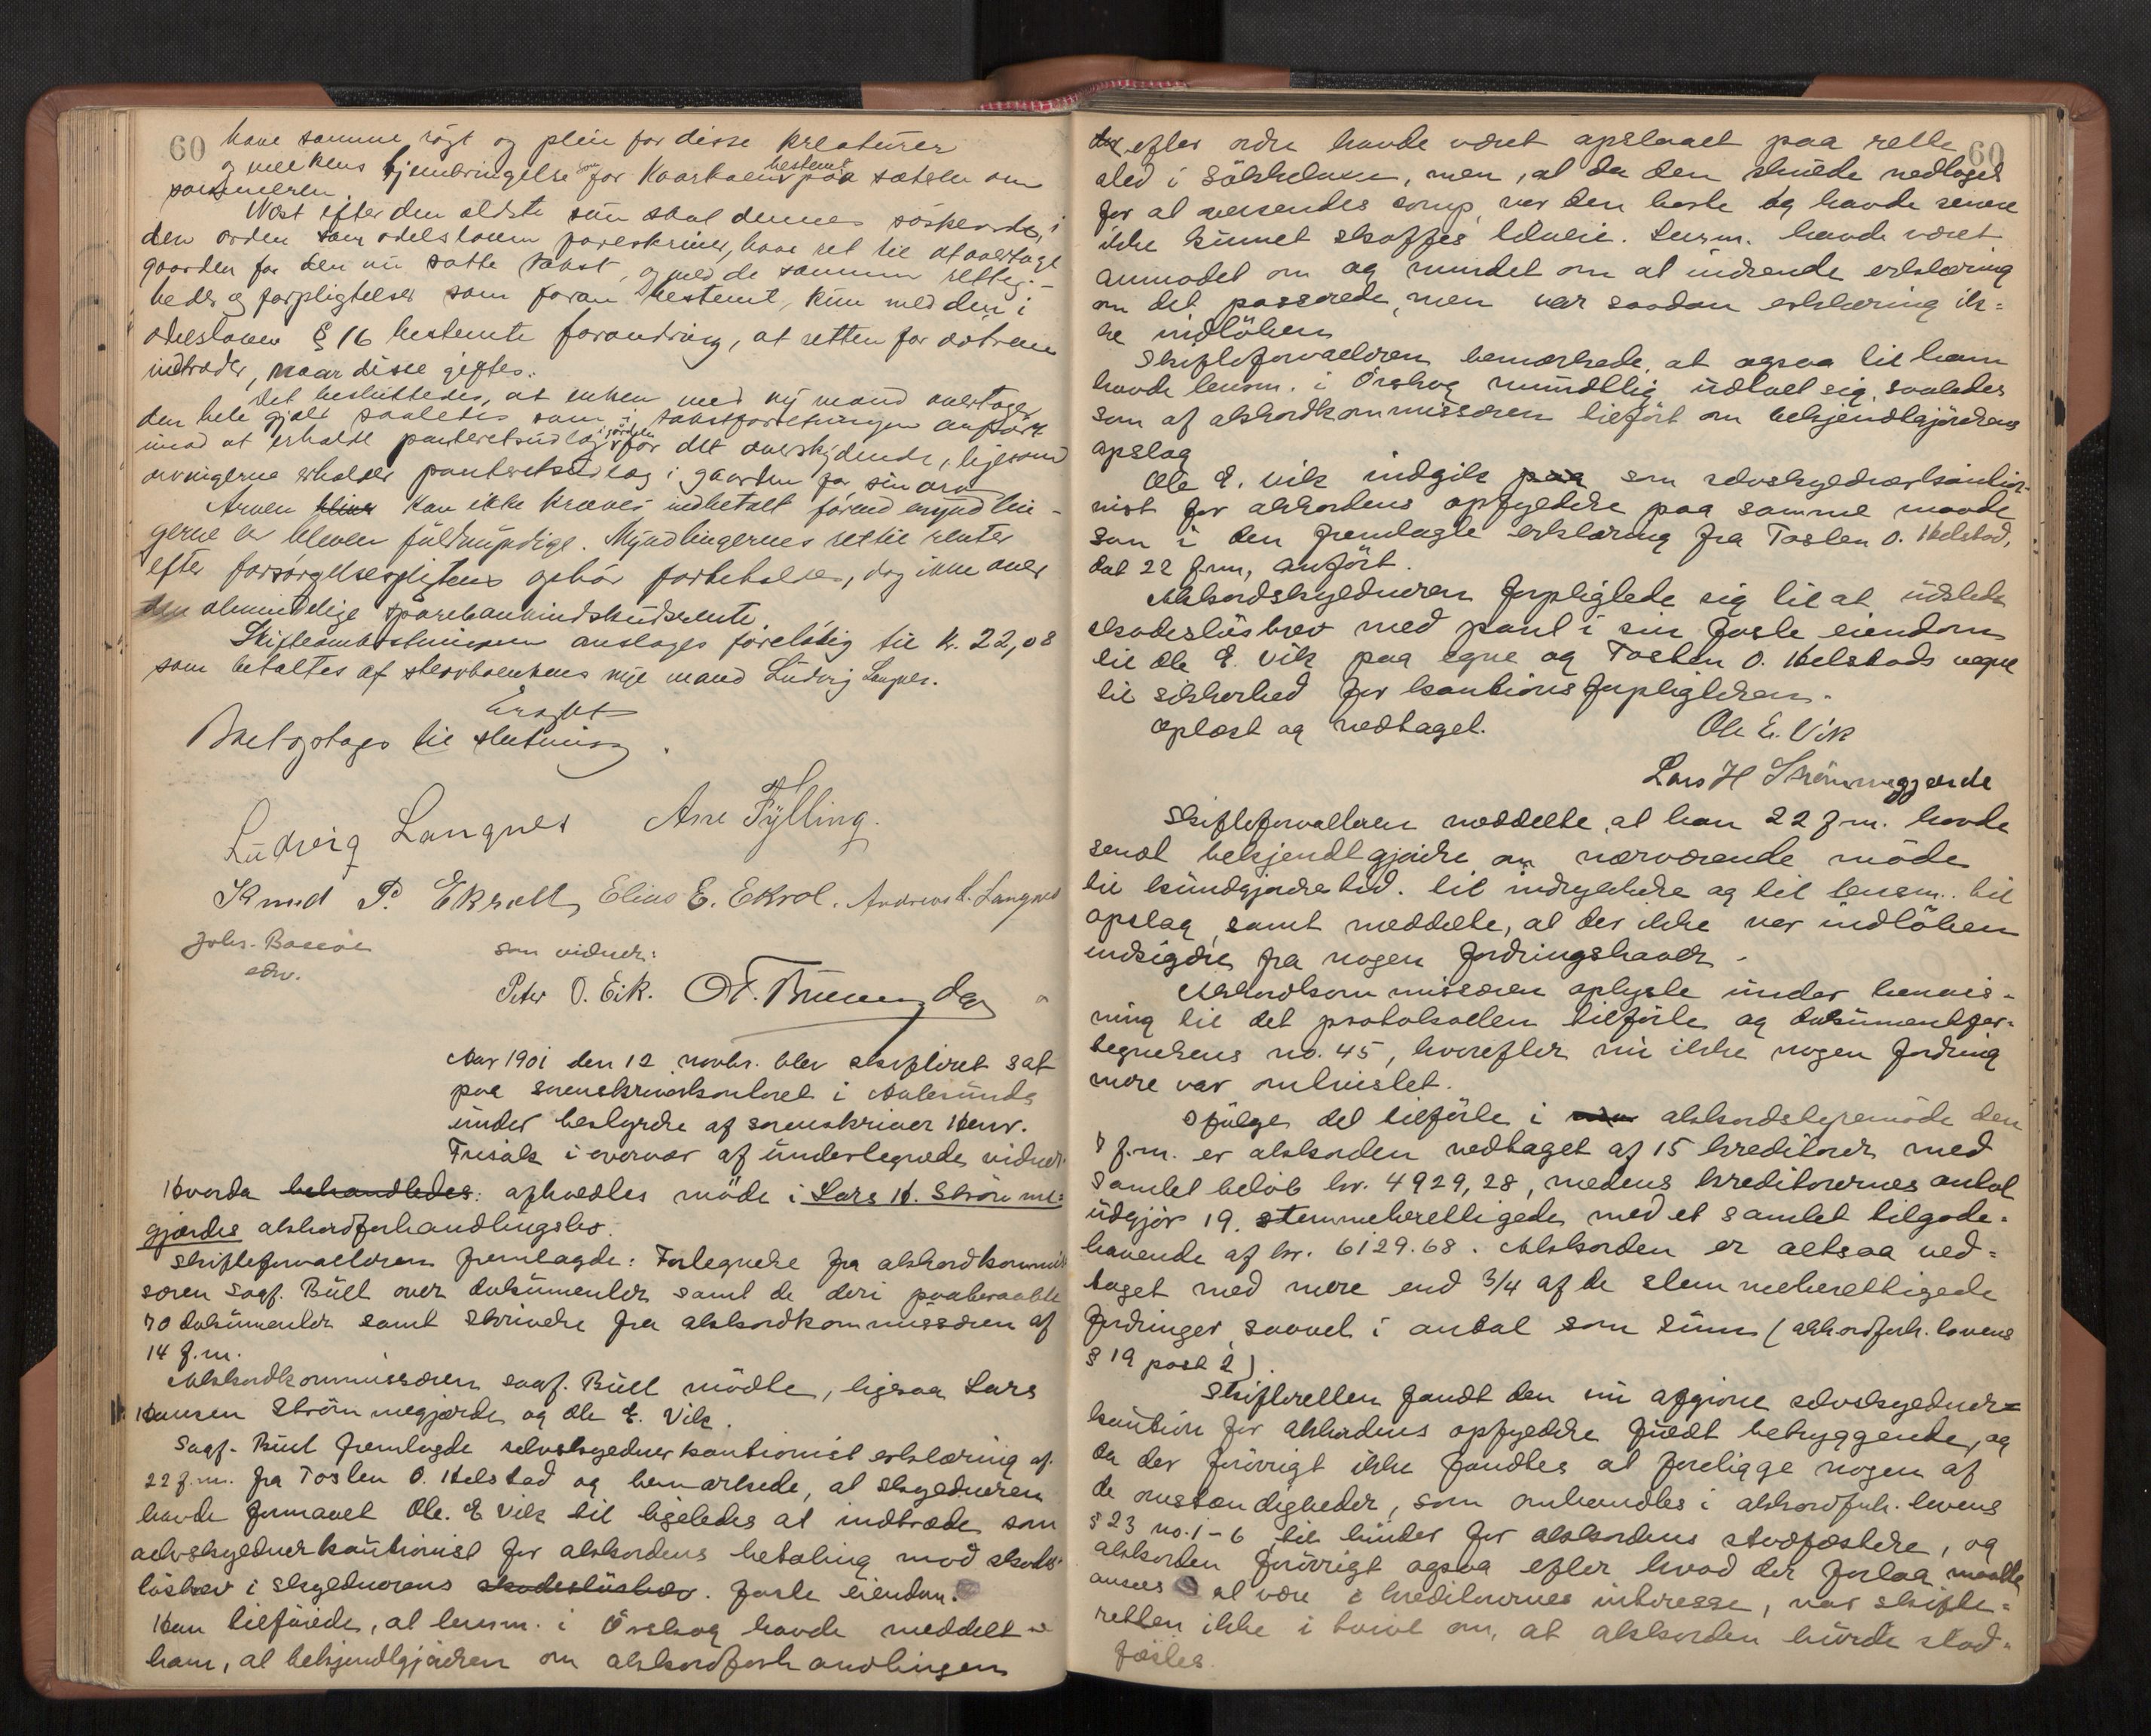 60
have samme røgt og pleie for disse kreaturer
og melkens hjembringelse som for Kaarkoens bestemt paa sætrer om
sommeren.
Næst efter den ældste søn skal dennes søskende, i
den orden som odelsloven foreskriver, have ret til at overtage
gaarden for den nu satte takst, og med de samme rettig-
heder og forpligtelser som foran bestemt, kun med den i
odelsloven § 16 bestemte forandring, at retten for døtrene
indtræder, naar disse giftes.
Det besluttedes, at enken med ny mand overtager
den hele gjæld saaledes som i takstforretningen anført
imod at erholde panteretsudlæg i gaarden for det overskydende, ligesom
arvingerne erholder panteretsudlæg i gaarden for sin arv
Arven bliver kan ikke kræves indbetalt førend myndlin-
gerne er bleven fuldmyndige. Myndlingernes ret til renter
efter forsørgelsespligtens ophør forbeholdes, dog ikke over
den almindelige sparebankindskudsrente.
Skifteomkostningen ansloges foreløbig til kr. 22,08
som betaltes af stervboenkens nye mand Ludvig Langnes.
Boet optages til slutning.
Ludvig Langnes Arne Fylling.
Knud P. Ekroll, Elias E. Ekrol. Andreas L. Langnes
som vidner:
Peter O. Eik.
Aar 1901 den 12 novbr. blev skifteret sat
paa sorenskriverkontoret i Aalesund
under bestyrelse af sorenskriver Henr.
Frisak i overvær af undertegnede vidner.
Hvorda behandledes: afholdtes møde i Lars H. Strømme-
gjærdes akkordforhandlingsbo.
Skifteforvalteren fremlagde: Fortegnelse fra akkordkommis
søren sagf. Bull over dokumenter samt de deri paaberaabte
70 dokumenter samt skrivelse fra akkordkommissæren af
14 f.m.
Akkordkommissæren sagf. Bull mødte, ligesaa Lars
Hansen Strømmegjærde og Ole E. Vik.
Sagf. Bull fremlagde selvskyldnerkautionist erklæring af
22 f.m. fra Tosten O. Helstad og bemærkede, at skyldneren
havde formaaet Ole E Vik til ligeledes at indtræde som
selvskyldnerkautionist for akkordens betaling mod skades-
løsbrev i skyldnerens skadesløsbrev. faste eiendom.
Han tilføiede, at lensm. i Ørskog havde meddelt
ham, at bekjendtgjørelsen om akkordforhandlingen
60
der efter ordre havde været opslaaet paa rette
sted i Søkkelven, men, at da den skulde nedtages
for at versendes somp, var den borte og havde senere
ikke kunnet skaffes tilveie. Lensm. havde været
anmodet om og mindet om at indsende erklæring
om det passerede, men var saadan erklæring ik-
ke indløben
Skifteforvalteren bemærkede, at ogsaa til ham
havde lensm. i Ørskog mundtlig udtalt sig, saaledes
som af akkordkommissæren tilført om bekjendtgjørelsens
opslag
Ole E. Vik indgik paa som selvskyldnerkautio-
nist for akkordens opfyldelse paa samme maade
som i den fremlagte erklæring fra Tosten O. Helstad,
dat 22 f.m, anført.
Akkordskyldneren forpligtede sig til at udstede
skadesløsbrev med pant i sin faste eiendom
til Ole E. Vik paa egne og Tosten O. Helstads vegne
til sikkerhed for kautionsforpligtelsen.
Oplæst og vedtaget. Ole E. Vik
Lars H Strømmegjærde
Skifteforvalteren meddelte, at han 22 f.m. havde
sendt bekjendtgjørelse om nærværende møde
til kundgjørelsestid. til indrykkelse og til lensm. til
opslag, samt meddelte, at der ikke var indløben
indsigelse fra nogen fordringshaver.
Akkordkommissæren oplyste under henvis-
ning til det protokollen tilførte og dokumentfor-
tegnelsens no. 45, hvorefter nu ikke nogen fordring
mere var omtvistet.
Ifølge det tilførte i akkordstyremøde den
7 f.m. er akkorden vedtaget af 15 kreditorer med
samlet beløb kr. 4929,28, medens kreditorernes antal
udgjør 19 stemmeberettigede med et samlet tilgode-
havende af kr. 6129.68. Akkorden er altsaa ved-
taget med mere end 3/4 af de stemmeberettigede
fordringer, saavel i antal som sum (akkordforh.lovens
§ 19 post 2).
Skifteretten fandt den nu afgivne selvskyldner-
kaution for akkordens opfyldelse fuldt betryggende, og
da der forøvrigt ikke fandtes at foreligge nogen af
de omstændigheder, som omhandles i akkordforh. lovens
§ 23 no. 1-6 til hinder for akkordens stadfæstelse, og
akkorden forøvrigt ogsaa efter hvad der forlaa maatte
ansees at være i kreditorernes interesse, var skifte-
retten ikke i tvivl om, at akkorden burde stad-
fæstes.